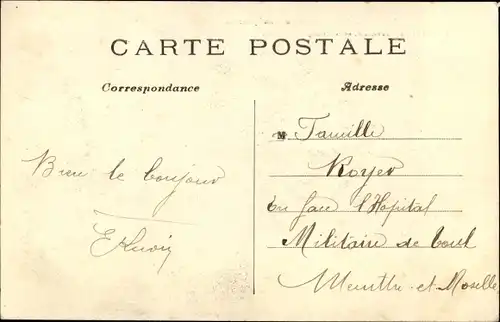 CARTE POSTALE
Correspondance
Adresse
Bien le bonjour
M Famille
Royer
en face l'Hopital
Militaire de Toul
Meurthe-et-Moselle